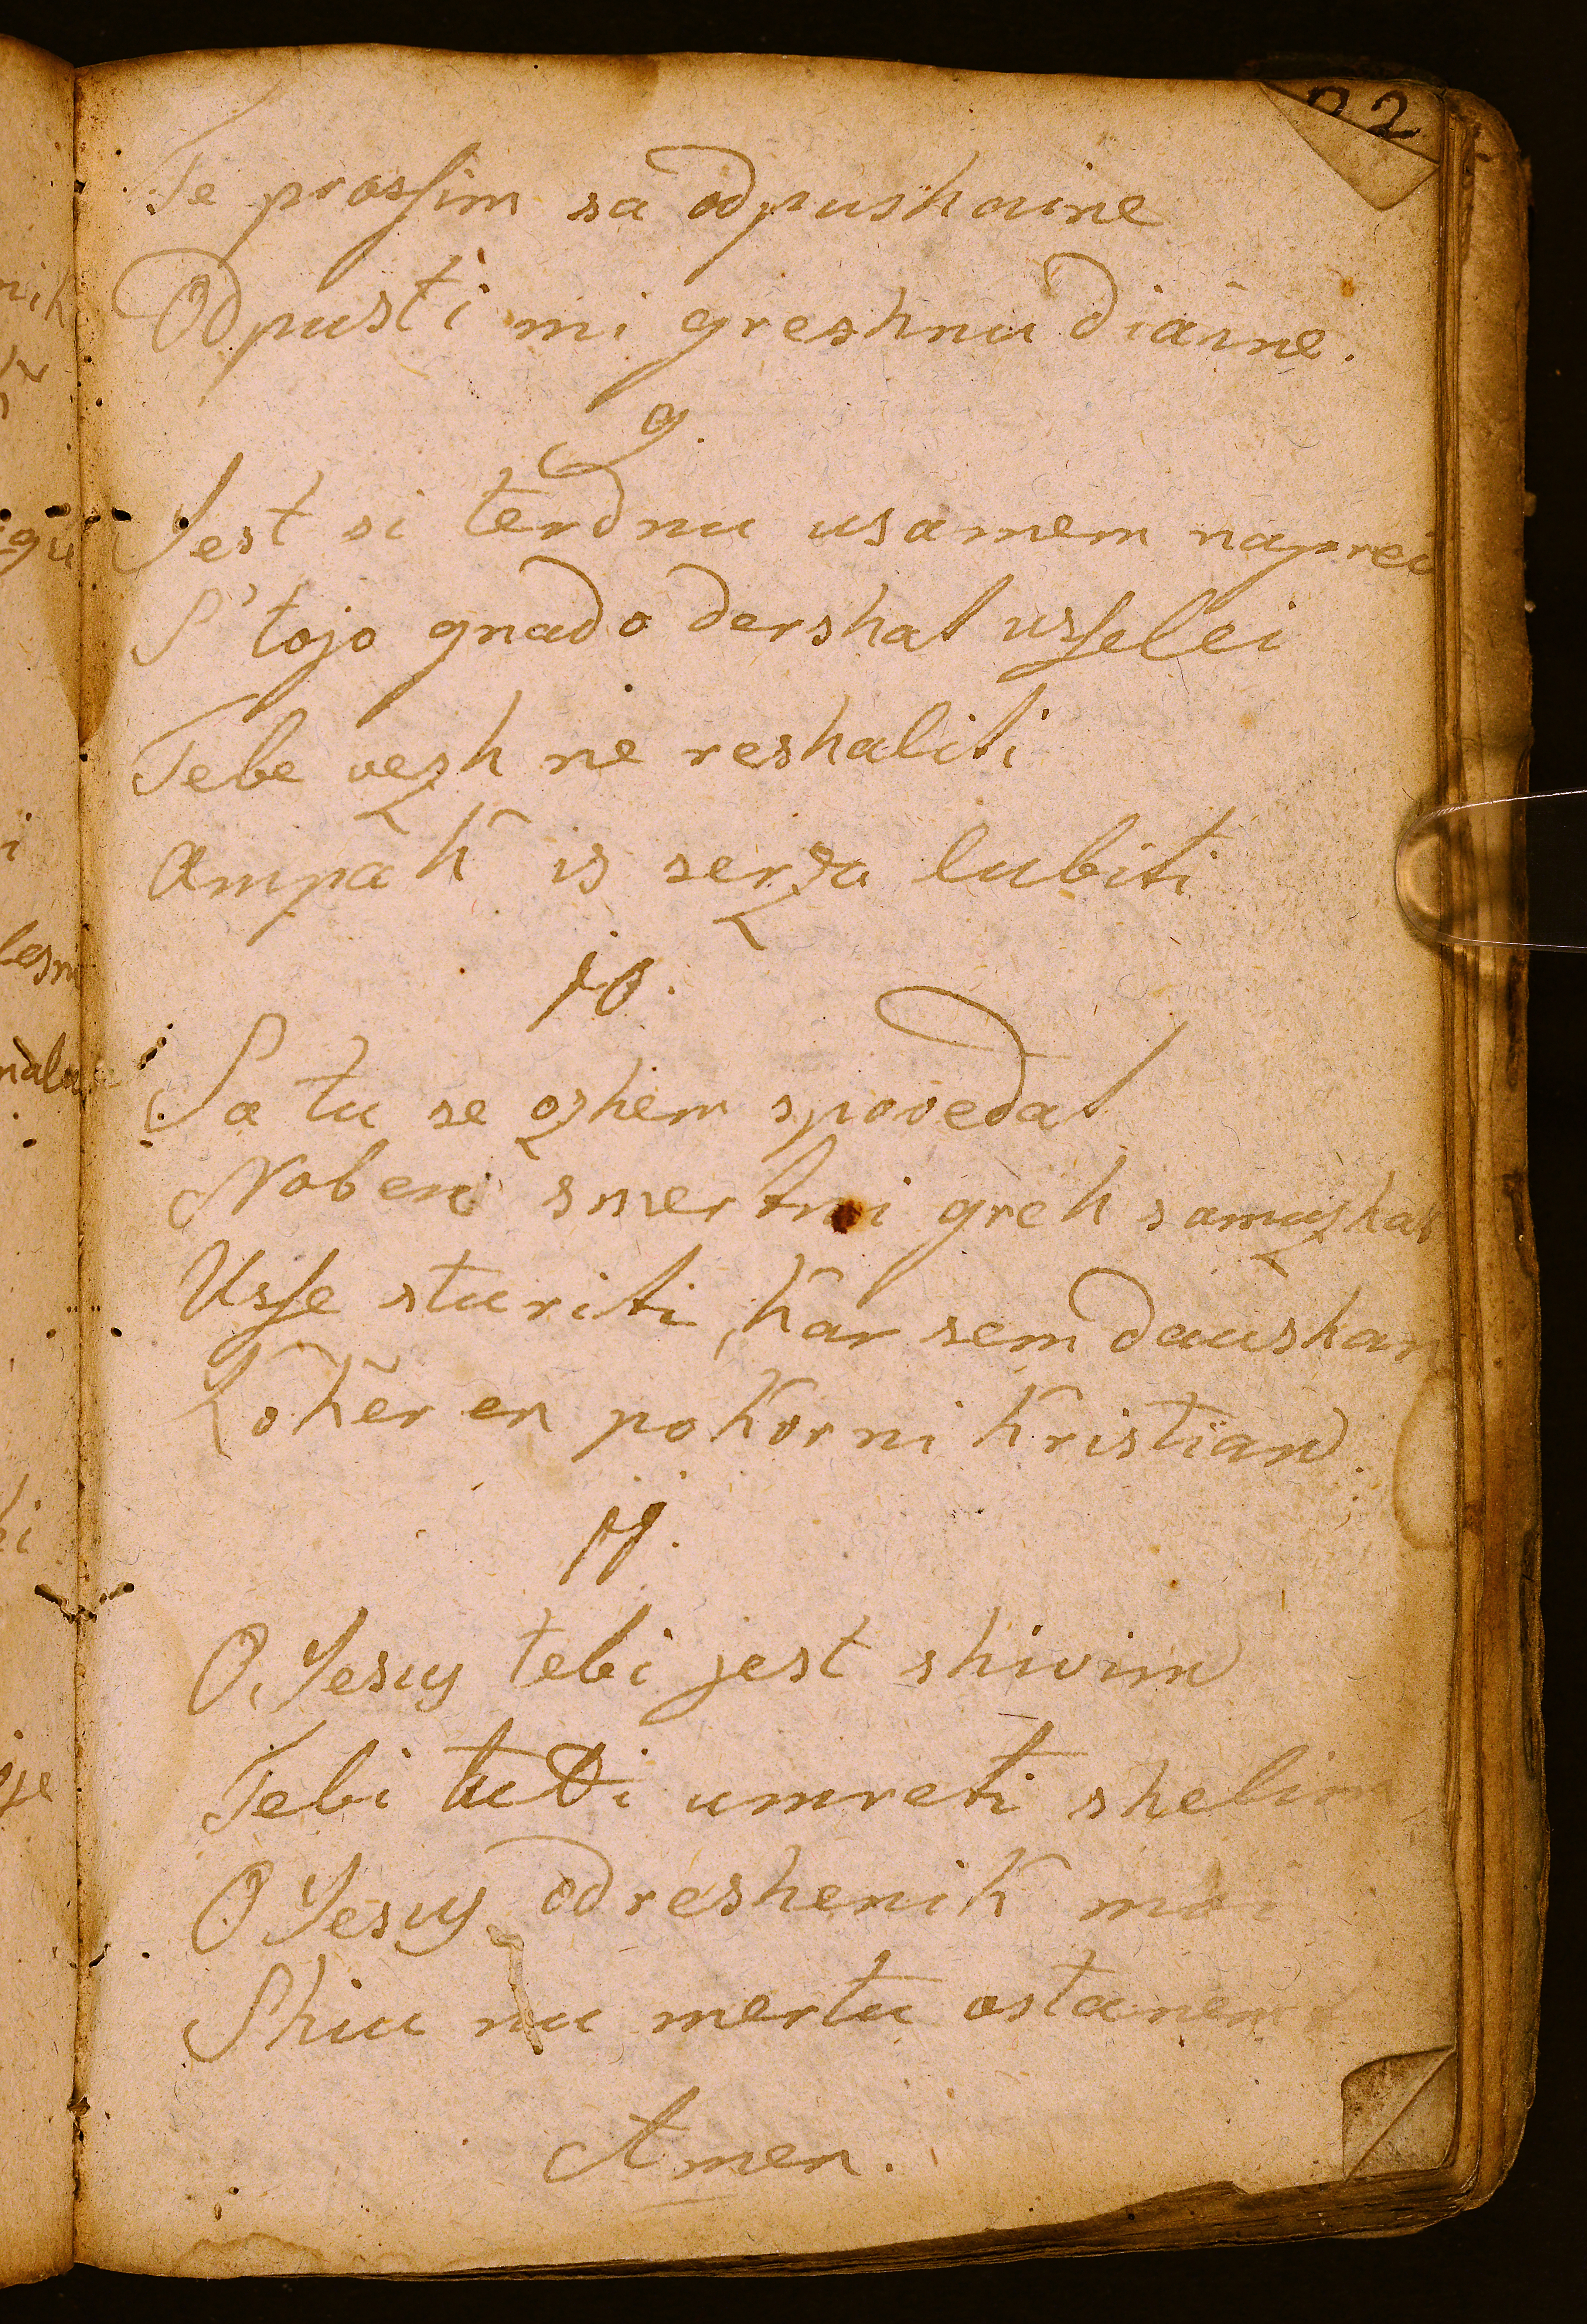 22
Te prosſim sa odpushaine
Odpusti mi greshnu diaine.
9.
Jest si terdnu usamem naprei
S' tojo gnado dershal usſelei
Tebe vezh ne reshaliti
Ampak is serza lubiti
10.
Sa tu se ozhem spovedal
Noben smertni greh samuzhal
Usſe sturiti, kar sem daushan
Koker en pokorni kristian.
11.
O Jesus tebi jest shivim
Tebi tudi umreti shelim
O Jesus odreshenik moi
Shiu nu mertu ostanem
Amen.